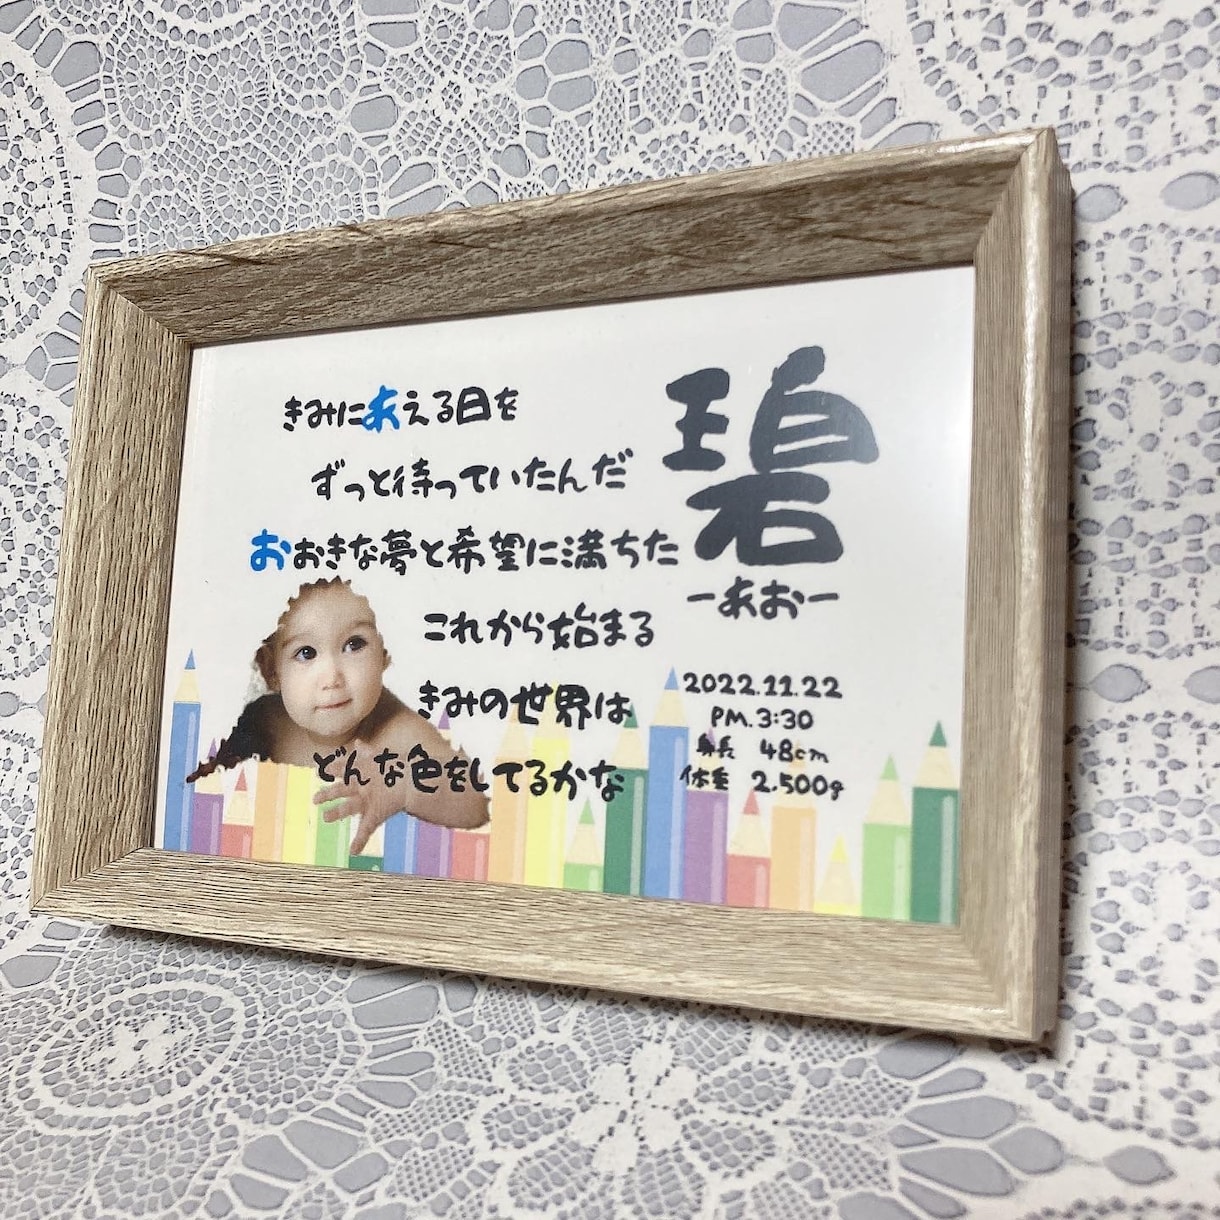 碧
－あお－
きみにあえる日を
ずっと待っていたんだ
おおきな夢と希望に満ちた
これから始まる
きみの世界は
どんな色をしてるかな
2022.11.22
PM.3:30
身長 48cm
体重 2.500g